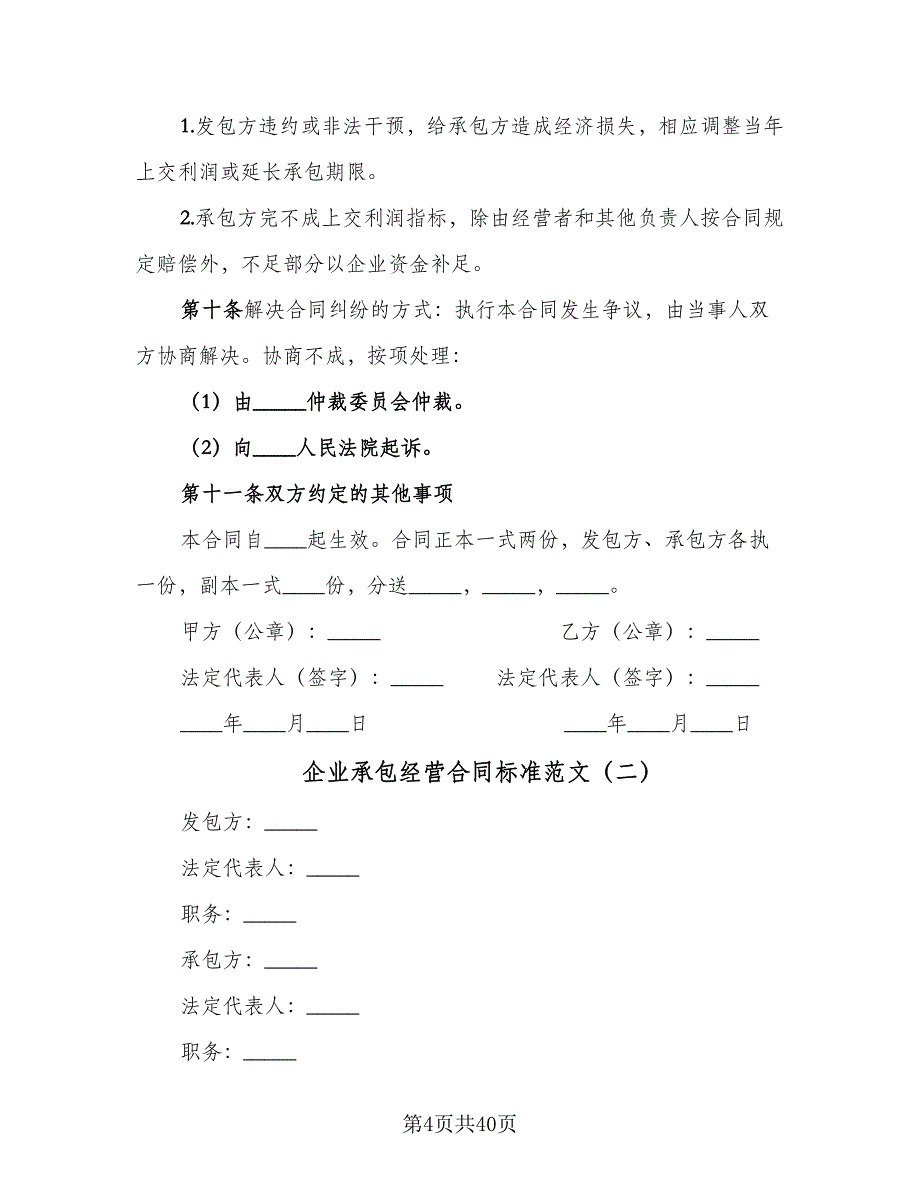 1.发包方违约或非法干预，给承包方造成经济损失，相应调整当年
上交利润或延长承包期限。
2.承包方完不成上交利润指标，除由经营者和其他负责人按合同规
定赔偿外，不足部分以企业资金补足。
第十条解决合同纠纷的方式：执行本合同发生争议，由当事人双
方协商解决。协商不成，按项处理：
（1）由_____仲裁委员会仲裁。
（2）向____人民法院起诉。
第十一条双方约定的其他事项
本合同自____起生效。合同正本一式两份，发包方、承包方各执
一份，副本一式____份，分送_____，_____，_____。
甲方（公章）：_____ 乙方（公章）：_____
法定代表人（签字）：_____ 法定代表人（签字）：_____
____年____月____日 ____年____月____日
企业承包经营合同标准范文（二）
发包方：_____
法定代表人：_____
职务：_____
承包方：_____
法定代表人：_____
职务：_____
第4页共40页